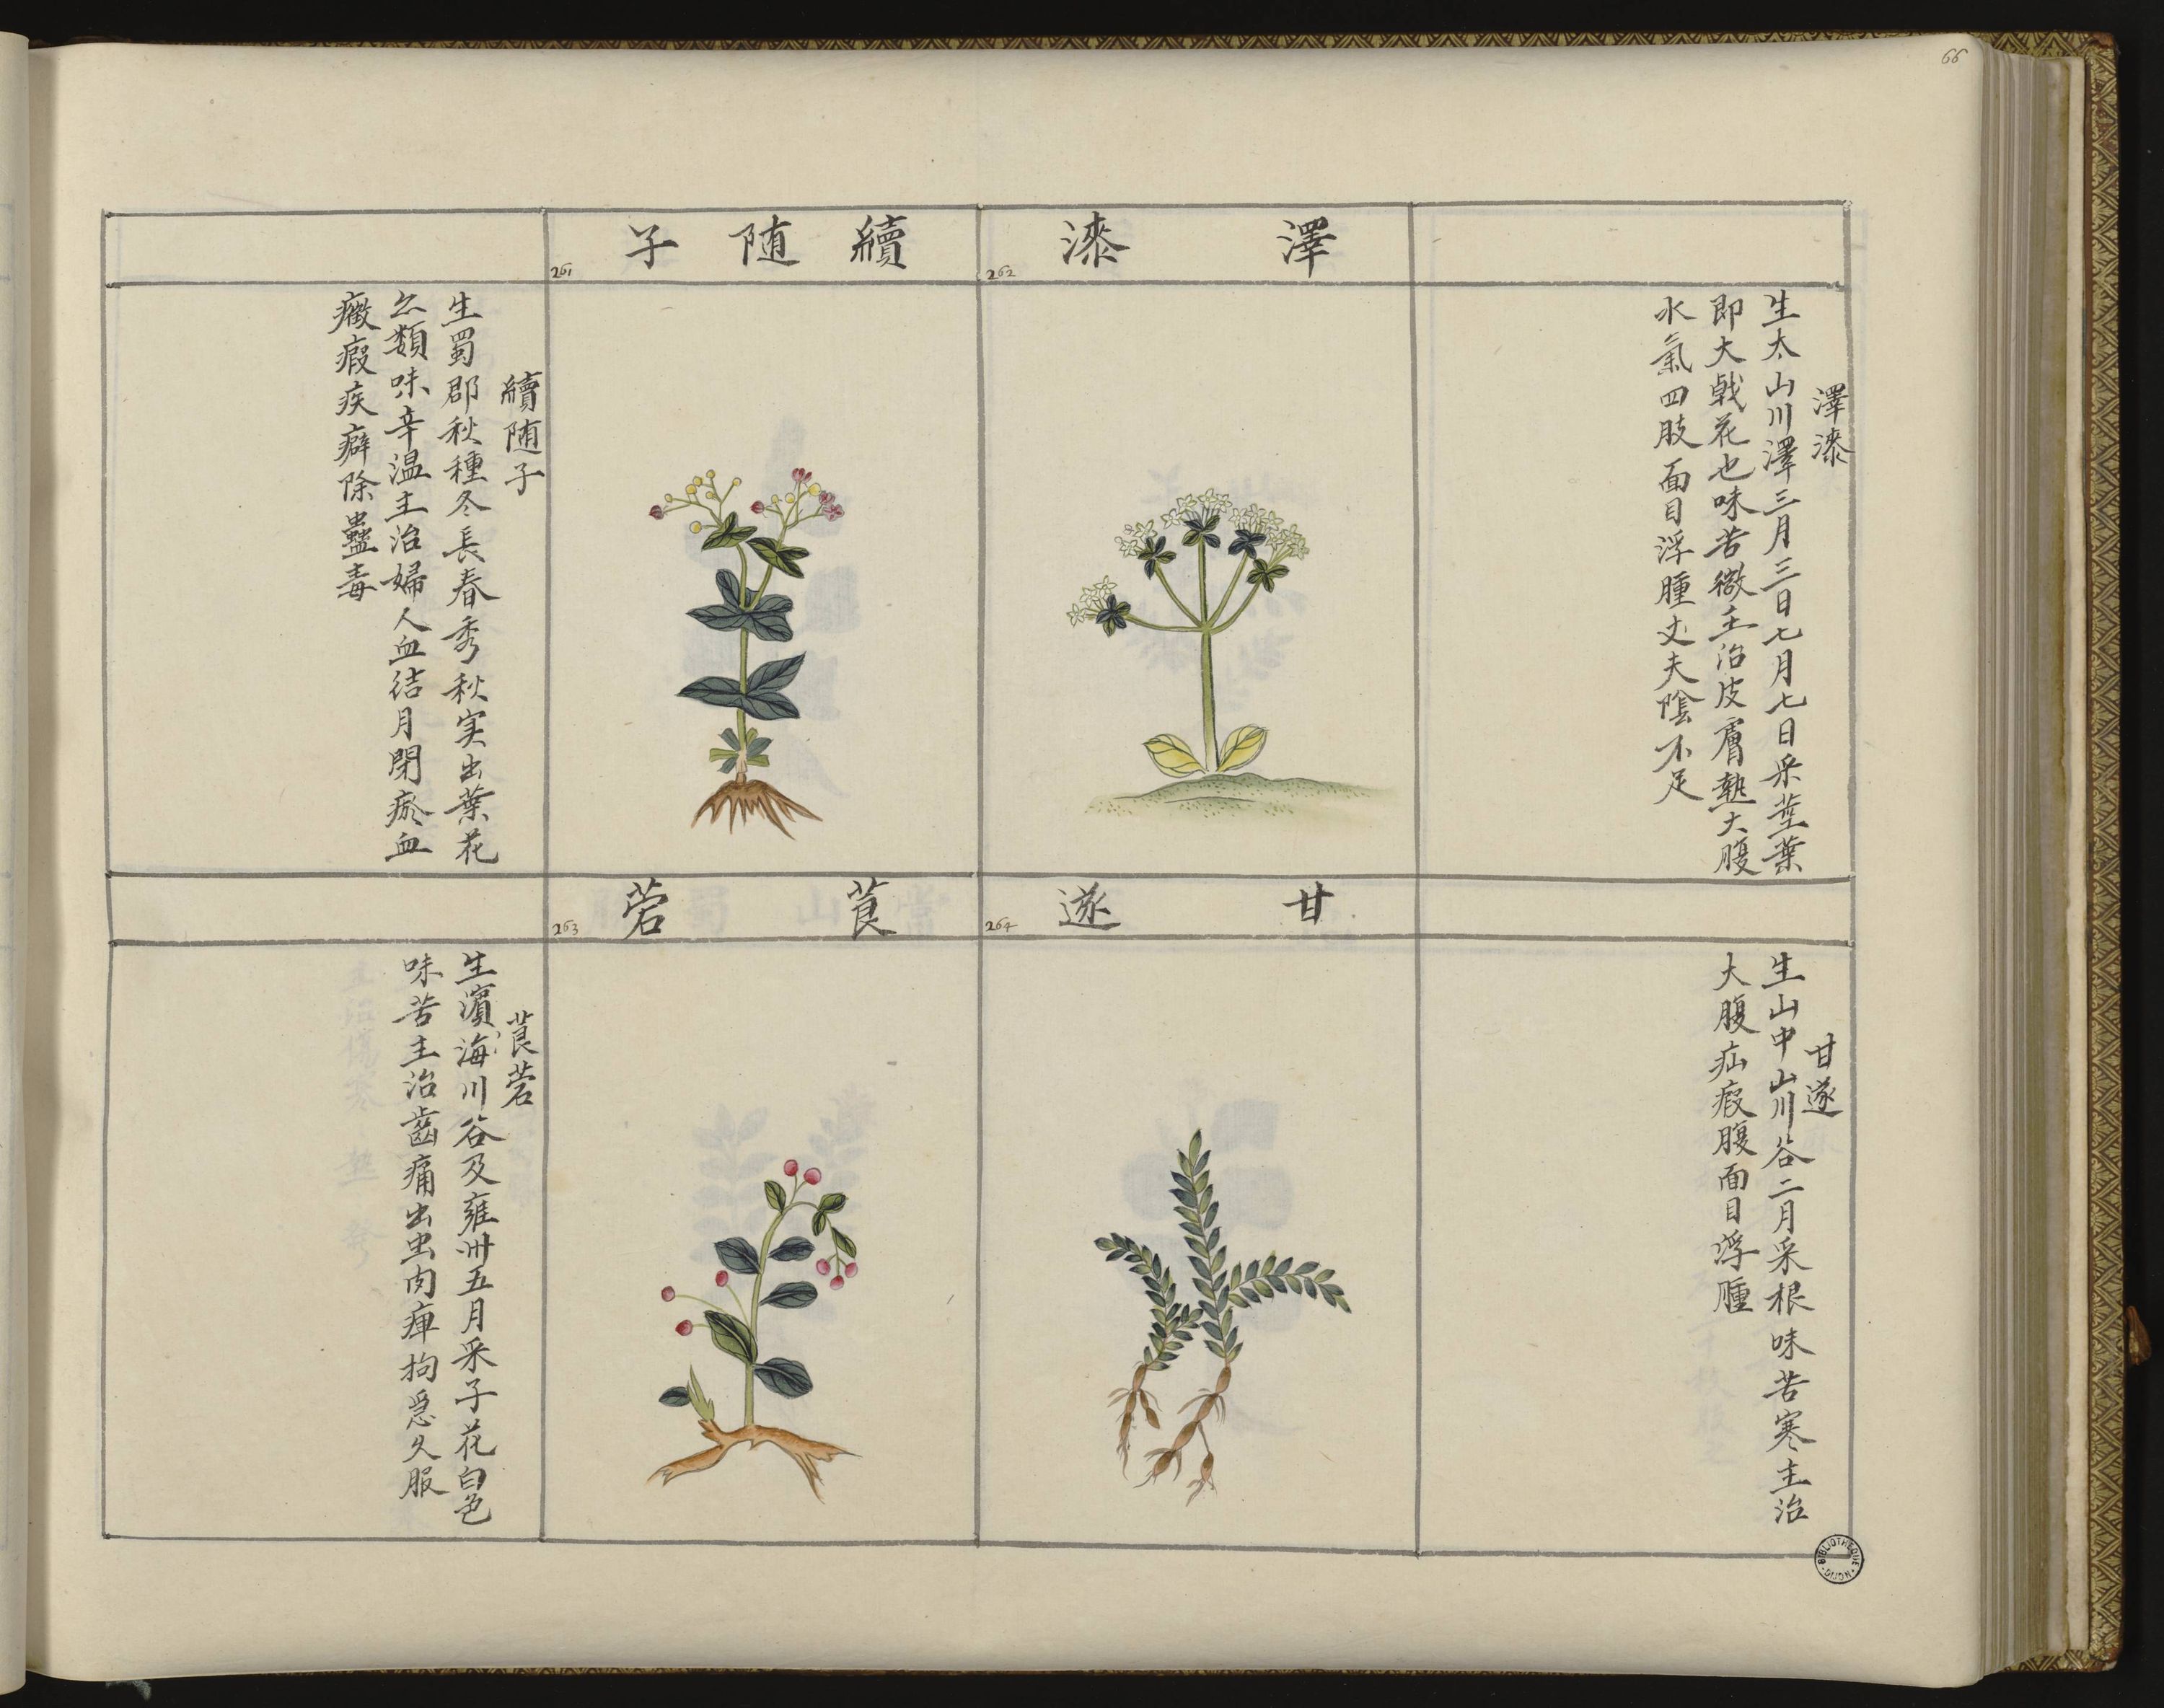 66
澤漆
262
澤漆
生太山川澤三月三日七月七日采莖葉
即大戟花也味苦微主治皮膚熱大腹
水氣四肢面目浮腫丈夫陰不足
續随子
261
續随子
生蜀郡秋種冬長春秀秋実出葉花
類味辛温主治婦人血结月閉瘀血
癥瘕痰癖除蠱毒
甘遂
264
甘遂
生山中山川谷二月采根味苦寒主治
大腹疝瘕腹面目浮腫
莨菪
263
莨菪
生濵海川谷及雍州五月采子花白色
味苦主治齒痛出虫肉痺拘急久服
BIBLIOTHEQUE DIJON